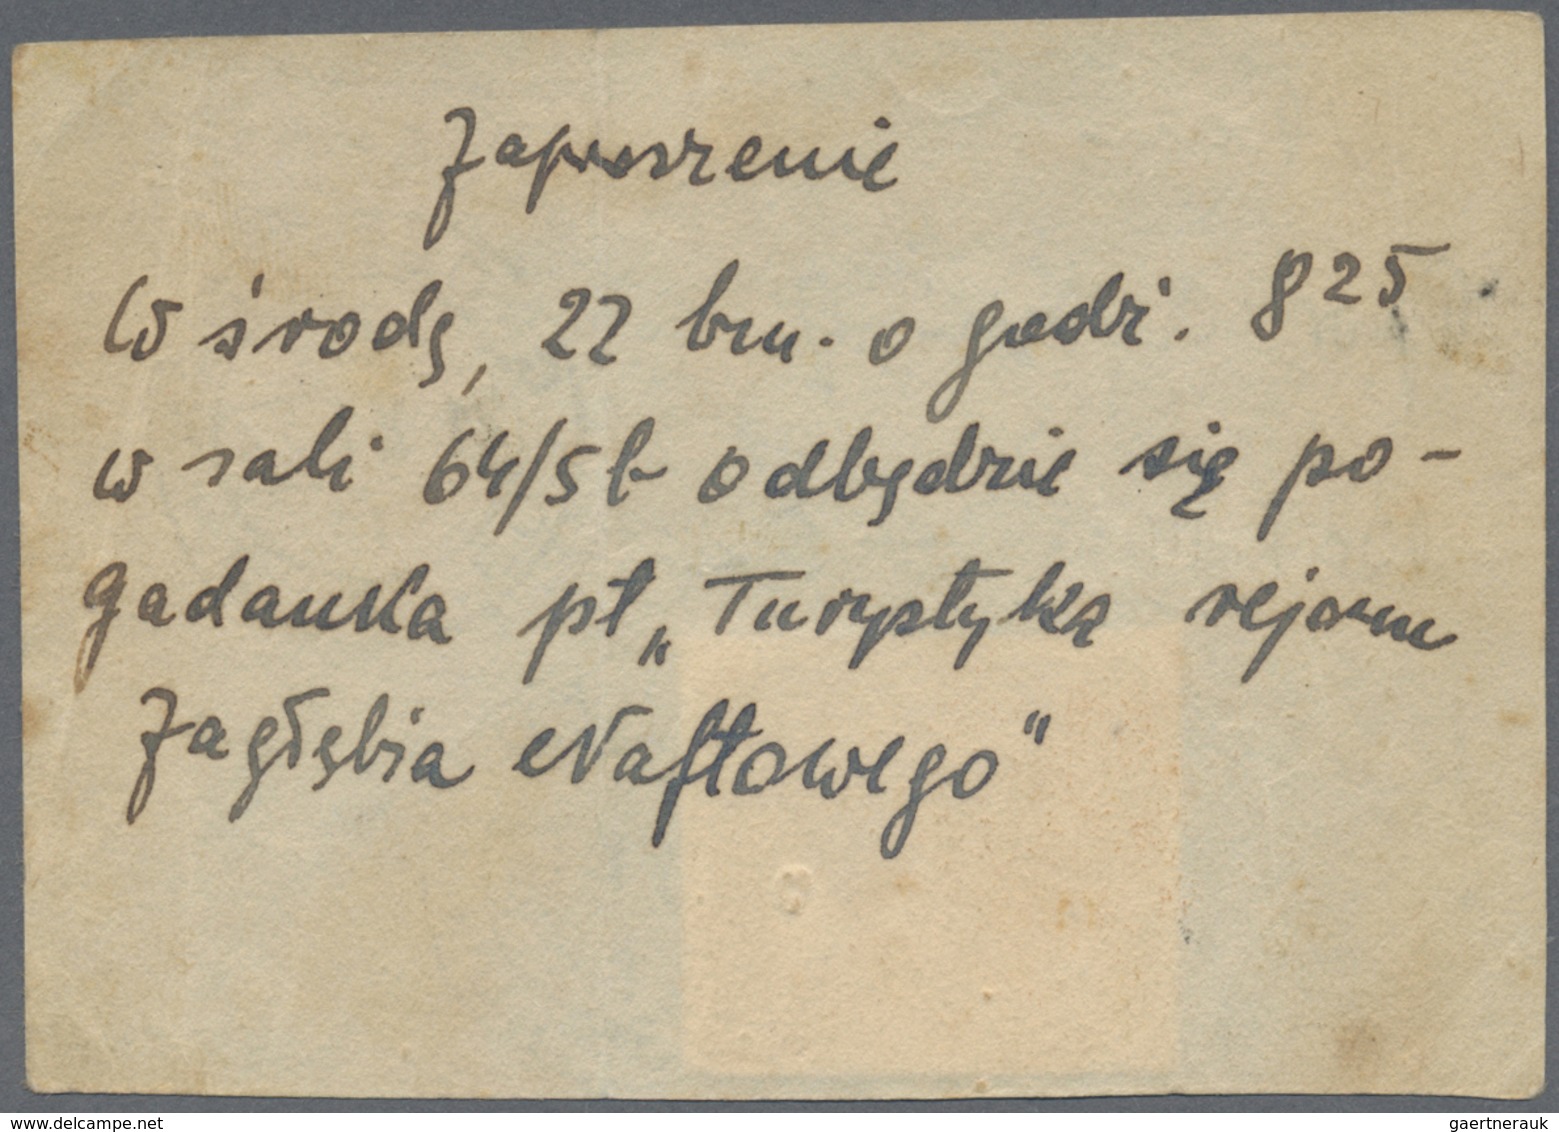 Zaproszenie
W środę, 22 bm. o godz. 8 25
w sali 64/5 b odbędzie się po-
gadanka pt „Turystyka rejonu
Zagłębia Naftowego"
gaertnerauk